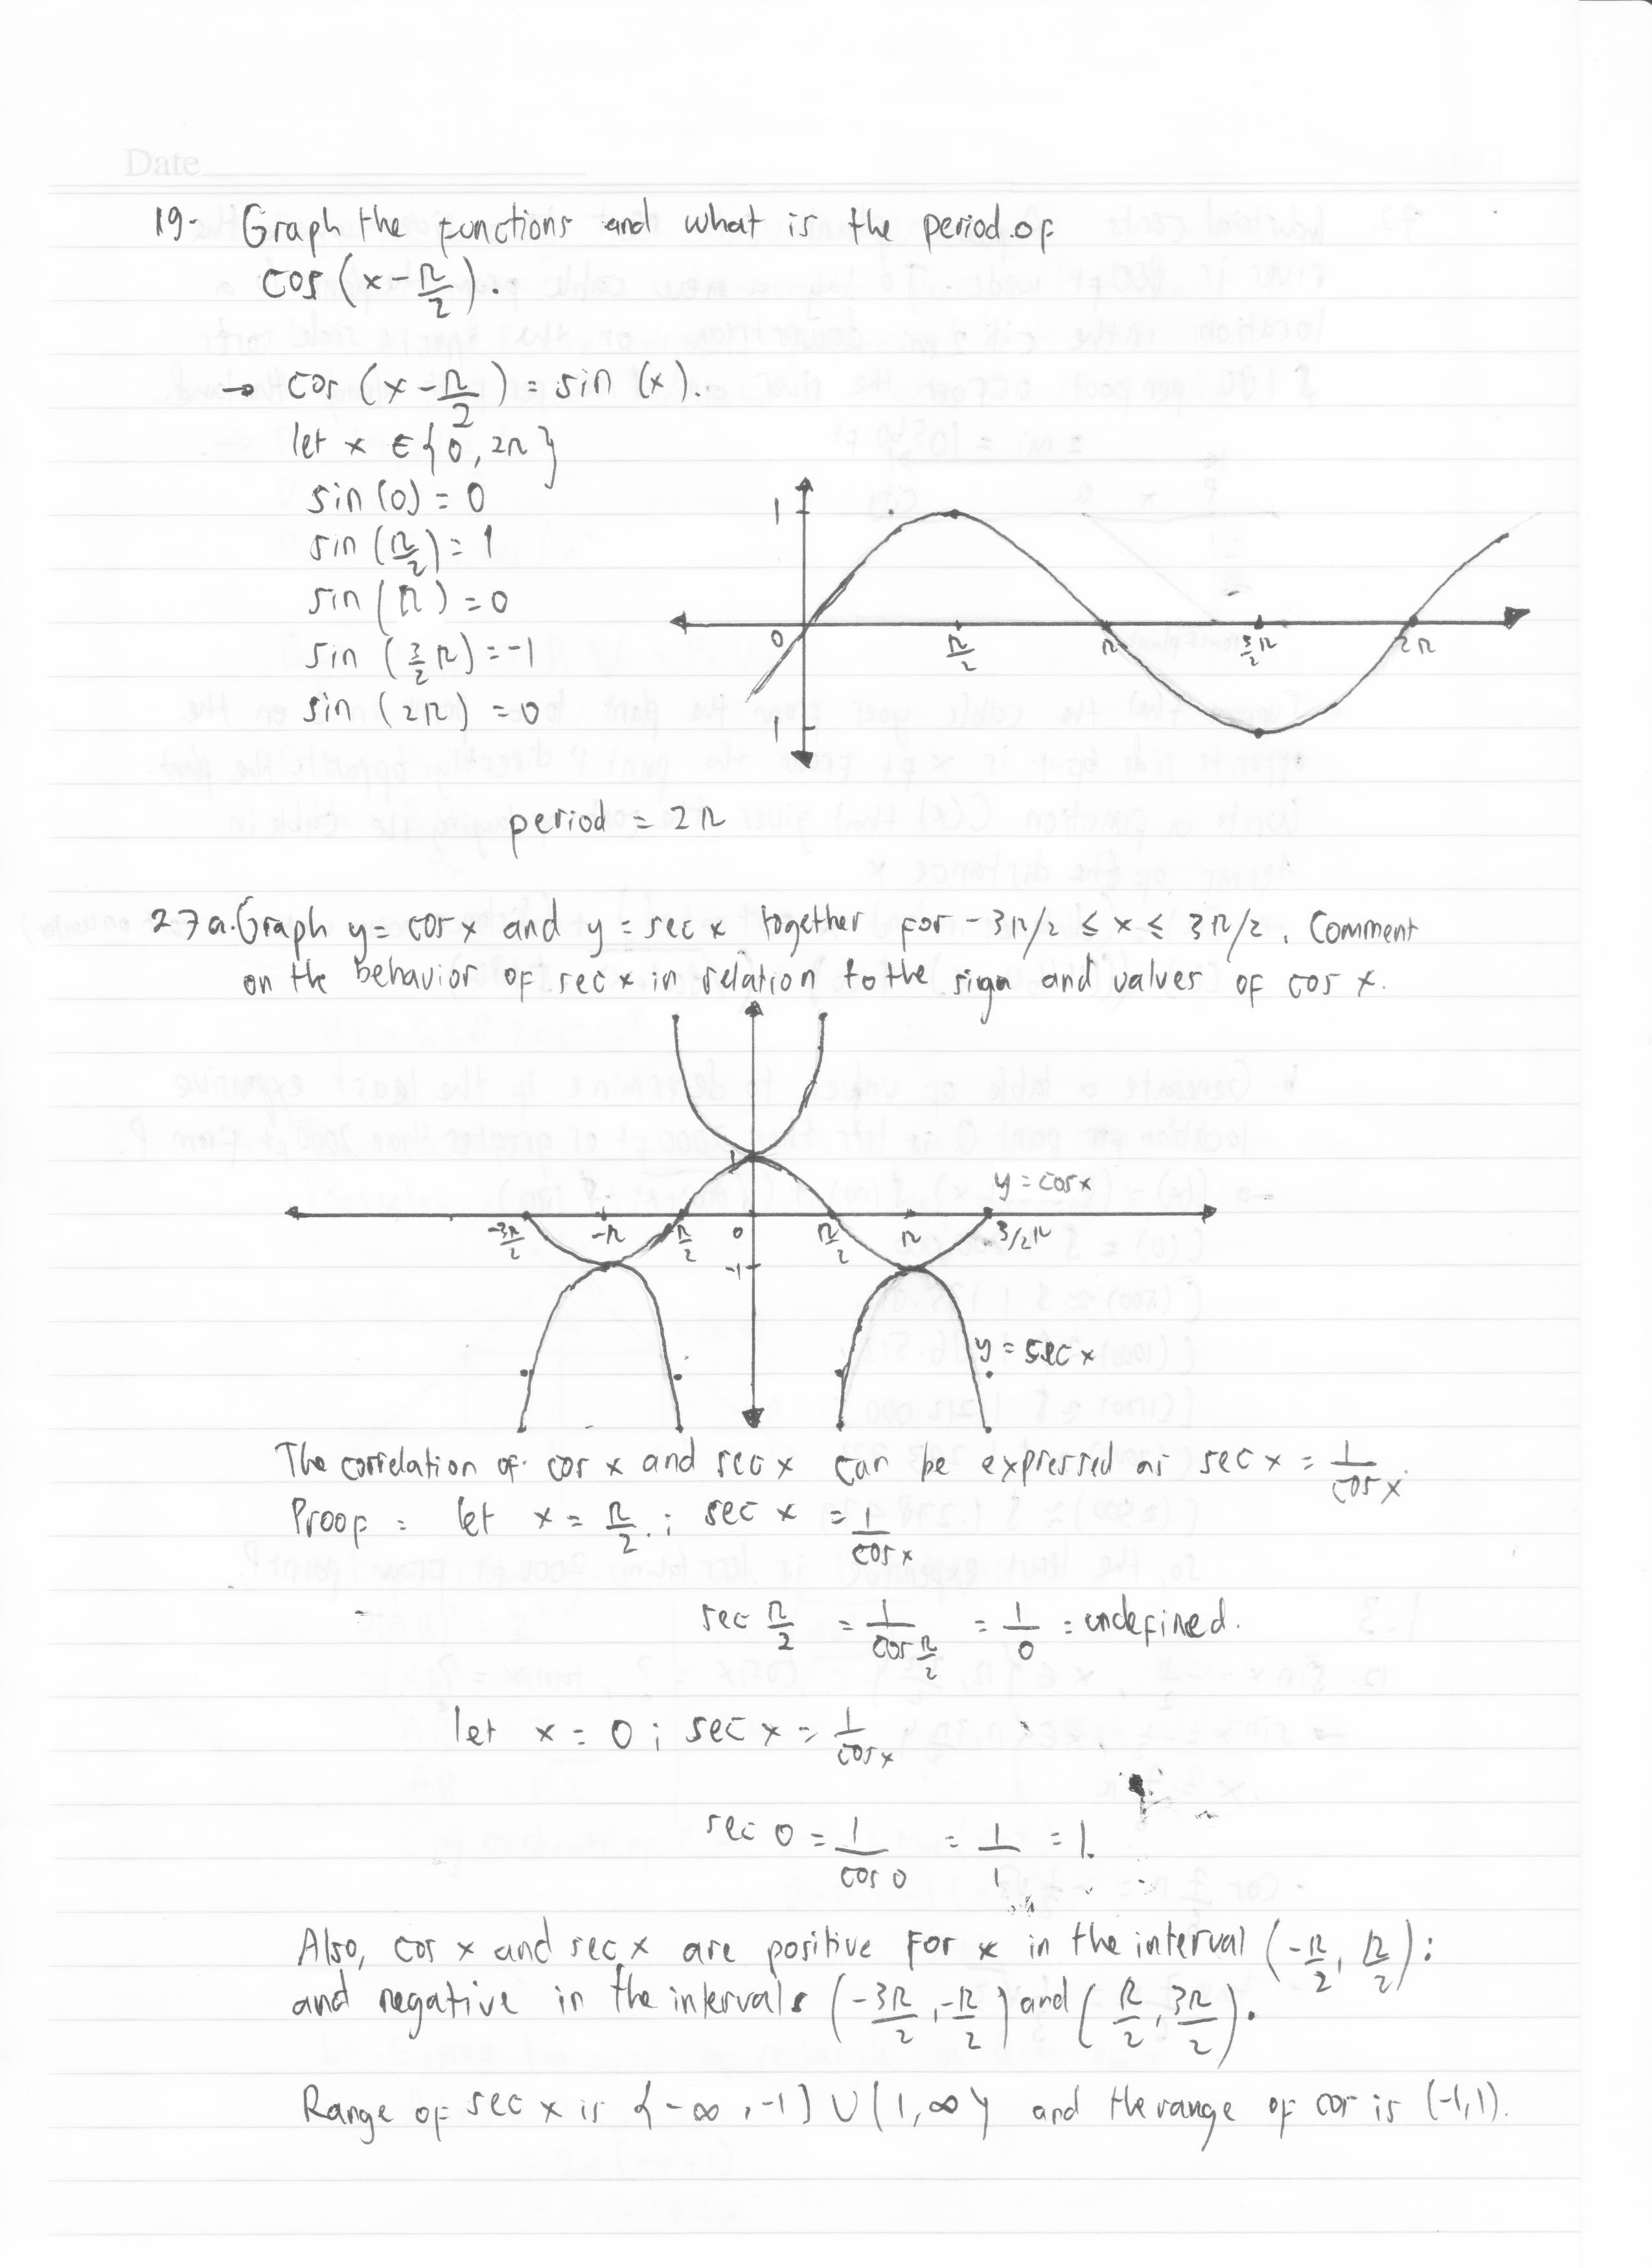 Date
19. Graph the functions and what is the period of
cos (x - π/2).
→ cos (x - π/2) = sin (x).
let x ∈ {0, 2π}
sin (0) = 0
sin (π/2) = 1
sin (π) = 0
sin (3/2 π) = -1
sin (2π) = 0
1
0 π/2 π 3/2 π 2π
1
period = 2π
27a. Graph y = cos x and y = sec x together for -3π/2 ≤ x ≤ 3π/2. Comment
on the behavior of sec x in relation to the sign and values of cos x.
1
y = cos x
-3π/2 -π -π/2 0 π/2 π 3/2 π
-1
y = sec x
The correlation of cos x and sec x can be expressed as sec x = 1/cos x.
Proof = let x = π/2 ; sec x = 1/cos x
sec π/2 = 1/cos π/2 = 1/0 = undefined.
let x = 0 ; sec x = 1/cos x
sec 0 = 1/cos 0 = 1/1 = 1.
Also, cos x and sec x are positive for x in the interval (-π/2, π/2);
and negative in the intervals (-3π/2, -π/2) and (π/2, 3π/2).
Range of sec x is {-∞, -1] ∪ [1, ∞} and the range of cos is (-1,1).